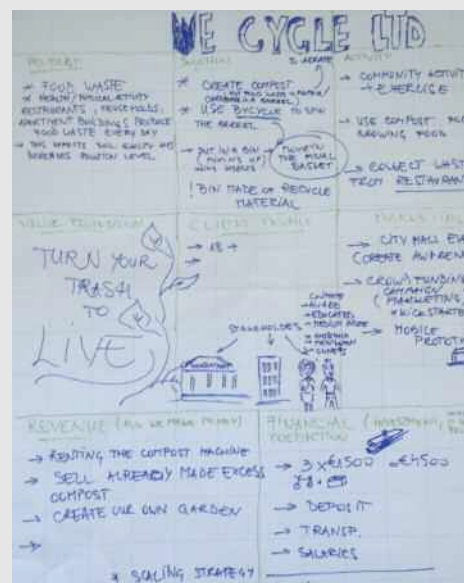 WE CYCLE LTD
PROBLEM
* FOOD WASTE
* HEALTH / PHYSICAL ACTIVITY
RESTAURANTS, HOUSEHOLDS,
APARTMENT BUILDINGS PRODUCE
FOOD WASTE EVERY DAY
→ THIS
INCREASES POLLUTION LEVEL
SOLUTION
* CREATE COMPOST
* USE BYCICLE TO SPIN
THE BARREL
→ PUT IN A BIN
MOVE IN
THE METAL
BASKET
! BIN MADE OF RECYCLE
MATERIAL
ACTIVITY
→ COMMUNITY ACTIVIT
→ EXERCISE
→ USE COMPOST
GROWING FOOD
→ COLLECT WAST
FROM RESTAURAN
VALUE PROPOSITION
TURN YOUR
TRASH
TO
LIVE
→ 18 +
→
→ CITY HALL EV
CREATE AWAREN
→ CROWDFUNDING
CAMPAIGN
(MARKETING)
KICKSTARTE
→ MOBILE
PROTOT
STAKEHOLDERS
→ EDUCATED
REVENUE
→ RENTING THE COMPOST MACHINE
→ SELL ALREADY MADE EXCESS
COMPOST
→ CREATE OUR OWN GARDEN
→
* SCALING STRATEGY
FINANCIAL (INVESTMENT)
→ 3 x €1500 = €4500
→ DEPOSIT
→ TRANSP.
→ SALARIES